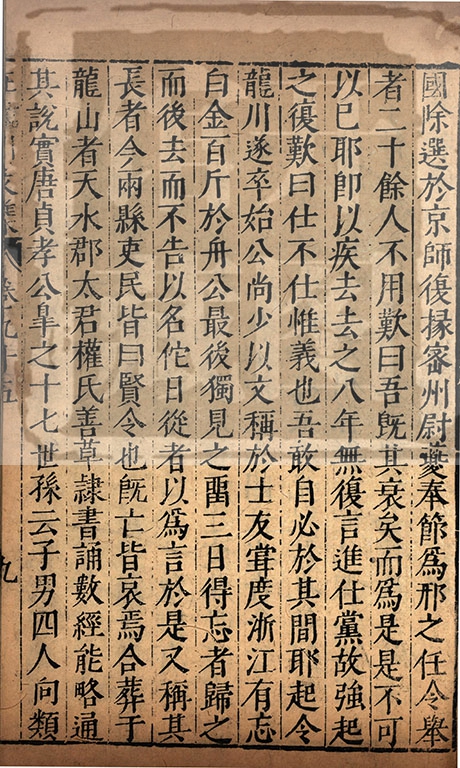 國除選於京師復掾密州尉夔奉節爲邢之任令舉
者二十餘人不用歎曰吾旣其衰矣而爲是是不可
以已耶卽以疾去去之八年無復言進仕黨故強起
之復歎曰仕不仕惟義也吾敢自必於其間耶起令
龍川遂卒始公尚少以文稱於士友嘗度浙江有忘
白金百斤於舟公最後獨見之畱三日得忘者歸之
而後去而不告以名佗日從者以爲言於是又稱其
長者今兩縣吏民皆曰賢令也旣亡皆哀焉合葬于
龍山者天水郡太君權氏善草隷書誦數經能略通
其說實唐貞孝公臯之十七世孫云子男四人向類
卷九十五
九